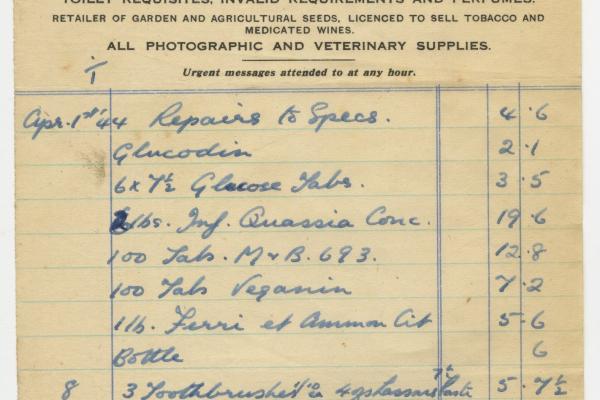 TOILET REQUISITES, INVALID REQUIREMENTS AND PERFUMES.
RETAILER OF GARDEN AND AGRICULTURAL SEEDS, LICENCED TO SELL TOBACCO AND
MEDICATED WINES.
ALL PHOTOGRAPHIC AND VETERINARY SUPPLIES.
Urgent messages attended to at any hour.
Apr. 1st '44 Repairs to Specs. 4 . 6
Glucodin 2 . 1
6 x 7½ Glucose Tabs. 3 . 5
lbs. Inf. Quassia Conc. 19 . 6
100 Tabs. M & B. 693. 12 . 8
100 Tabs Veganin 7 . 2
1 lb. Ferri et Ammon Cit 5 . 6
Bottle 6
8 3 Toothbrushes Paste 5 . 7½